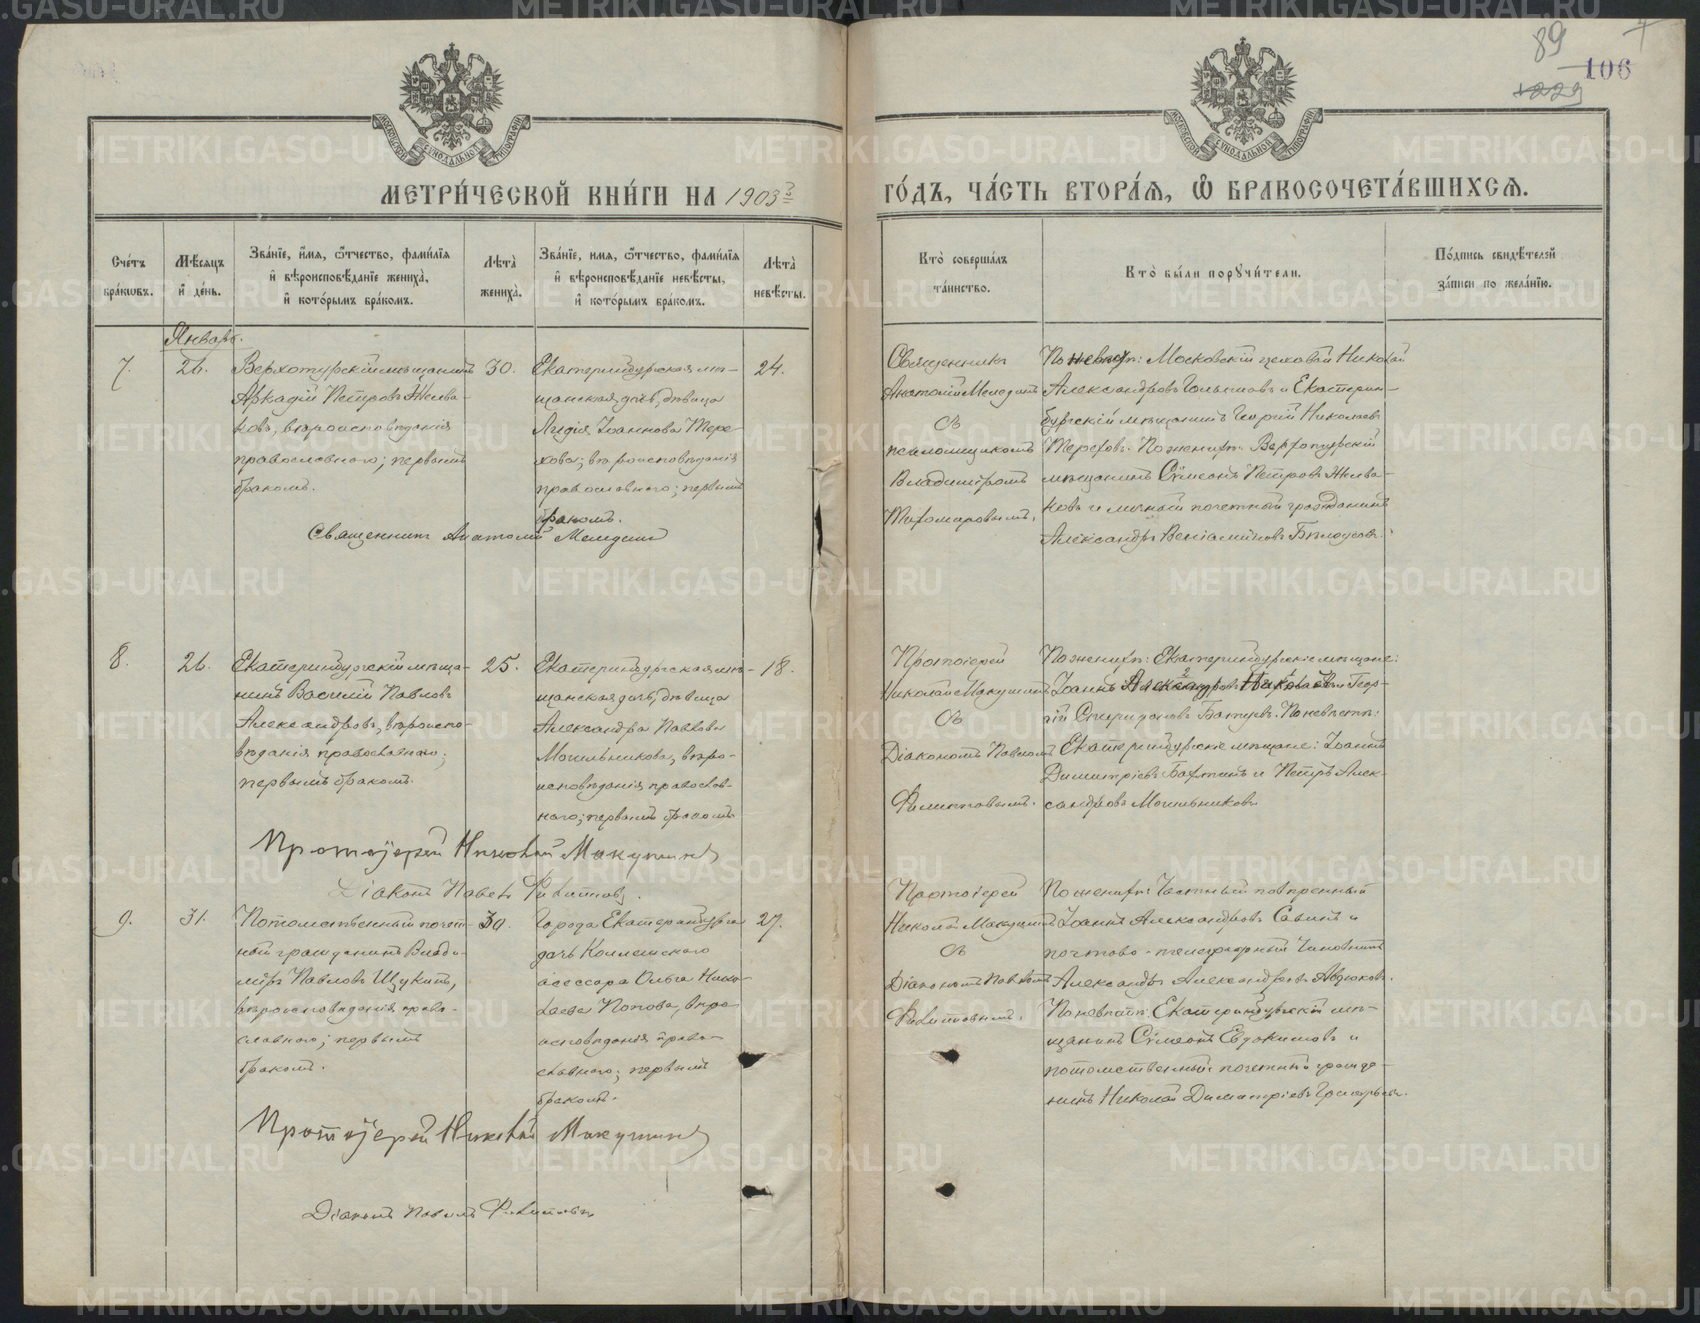 89
106
МЕТРИ́ЧЕСКОЙ КНИ́ГИ НА 1903
ГО́ДЪ, ЧА́СТЬ ВТОРА́Я, Ѿ БРАКОСОЧЕТА́ВШИХСЯ.
Сче́тъ бра́ковъ.
Мѣ́сяцъ и де́нь.
Зва́нїе, и́мя, ѻ҆́тчество, фами́лїя и вѣроисповѣ́данїе жениха̀, и кото́рымъ бра́комъ.
Лѣта̀ жениха̀.
Зва́нїе, и́мя, ѻ҆́тчество, фами́лїя и вѣроисповѣ́данїе невѣ́сты, и кото́рымъ бра́комъ.
Лѣта̀ невѣ́сты.
Кто̀ соверша́лъ та́инство.
Кто̀ бы́ли порꙋчи́тели.
По́дпись свидѣ́телей за́писи по жела́нїю.
Январь.
7.
26.
Верхотурскій мѣщанинъ
Аркадій Петровъ Желва-
ковъ, вѣроисповѣданія
православнаго; первымъ
бракомъ.
30.
Екатеринбургская мѣ-
щанская дочь, дѣвица
Лидія Іоаннова Тере-
хова; вѣроисповѣданія
православнаго; первымъ
бракомъ.
24.
Священникъ Анатолій
Священникъ
Анатолій
съ
псаломщикомъ
Владиміромъ
Тихомаровымъ.
По невѣст: Московскій цеховой Николай
Александровъ и Екатерин-
бургскій мѣщанинъ Георгій Николаевъ
Тереховъ. По жениху: Верхотурскій
мѣщанинъ Сѵмеонъ Петровъ Желва-
ковъ и личный почетный гражданинъ
Александръ Веніаминовъ Бѣлоусовъ.
8.
26.
Екатеринбургскій мѣща-
нинъ Василій Павловъ
Александровъ, вѣроиспо-
вѣданія православнаго;
первымъ бракомъ.
25.
Екатеринбургская мѣ-
щанская дочь, дѣвица
Александра Павлова
Могильникова, вѣро-
исповѣданія православ-
наго; первымъ бракомъ
18.
Протоіерей Николай Макушинъ
Діаконъ Павелъ Филипповъ.
Протоіерей
Николай Макушинъ
съ
Діакономъ Павломъ
Филипповымъ.
По жениху: Екатеринбургскіе мѣщане:
Іоаннъ Александровъ и Геор-
гій Спиридоновъ. По невѣстѣ:
Екатеринбургскіе мѣщане: Іоаннъ
Димитріевъ и Петръ Алек-
сандровъ Могильниковъ
9.
31.
Потомственный почет-
ный гражданинъ Влади-
міръ Павловъ Щукинъ,
вѣроисповѣданія право-
славнаго; первымъ
бракомъ.
30.
Города Екатеринбурга
дочь Коллежскаго
асессора Ольга Нико-
лаева Попова, вѣро-
исповѣданія право-
славнаго; первымъ
бракомъ.
27.
Протоіерей Николай Макушинъ
Діаконъ Павелъ Филипповъ
Протоіерей
Николай Макушинъ
съ
Діакономъ Павломъ
Филипповымъ.
По жениху: Частный повѣренный
Іоаннъ Александровъ Савинъ и
почтово-телеграфный чиновникъ
Александръ Александровъ Авдюковъ.
По невѣстѣ: Екатеринбургскій мѣ-
щанинъ Сѵмеонъ Евдокимовъ и
потомственный почетный гражда-
нинъ Николай Димитріевъ